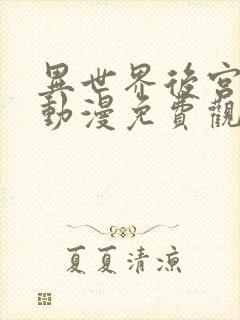 異世界後宮
動漫免費觀
夏夏清涼